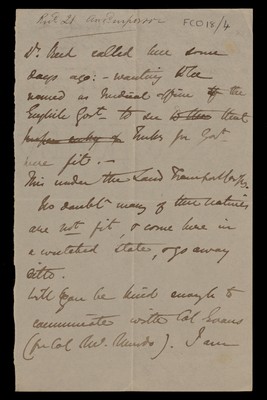 FCO18/4
Dr. Beck called here some
days ago: - wanting to be
named as Medical officer of the
English Govt to see that
Turks for Govt
here fit. -
This under the Land Transport
No doubt many of the natives
are not fit, & come here in
a wretched state, & go away
ditto.
Will you be kind enough to
communicate with Col Evans
(for Col Mc. Murdo). I am